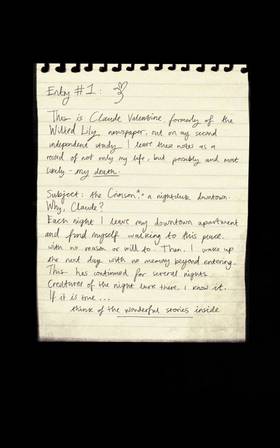 Entry #1:
This is Claude Valentine, formerly of the
Wilted Lily newspaper, out on my second
independent study. I leave these notes as a
record of not only my life, but possibly and most
likely - my death.
Subject: the Crimson - a nightclub downtown.
Why, Claude?
Each night I leave my downtown apartment
and find myself walking to this place
with no reason or will to. Then, I wake up
the next day with no memory beyond entering.
This has continued for several nights.
Creatures of the night lurk there, I know it.
If it is true...
think of the wonderful stories inside